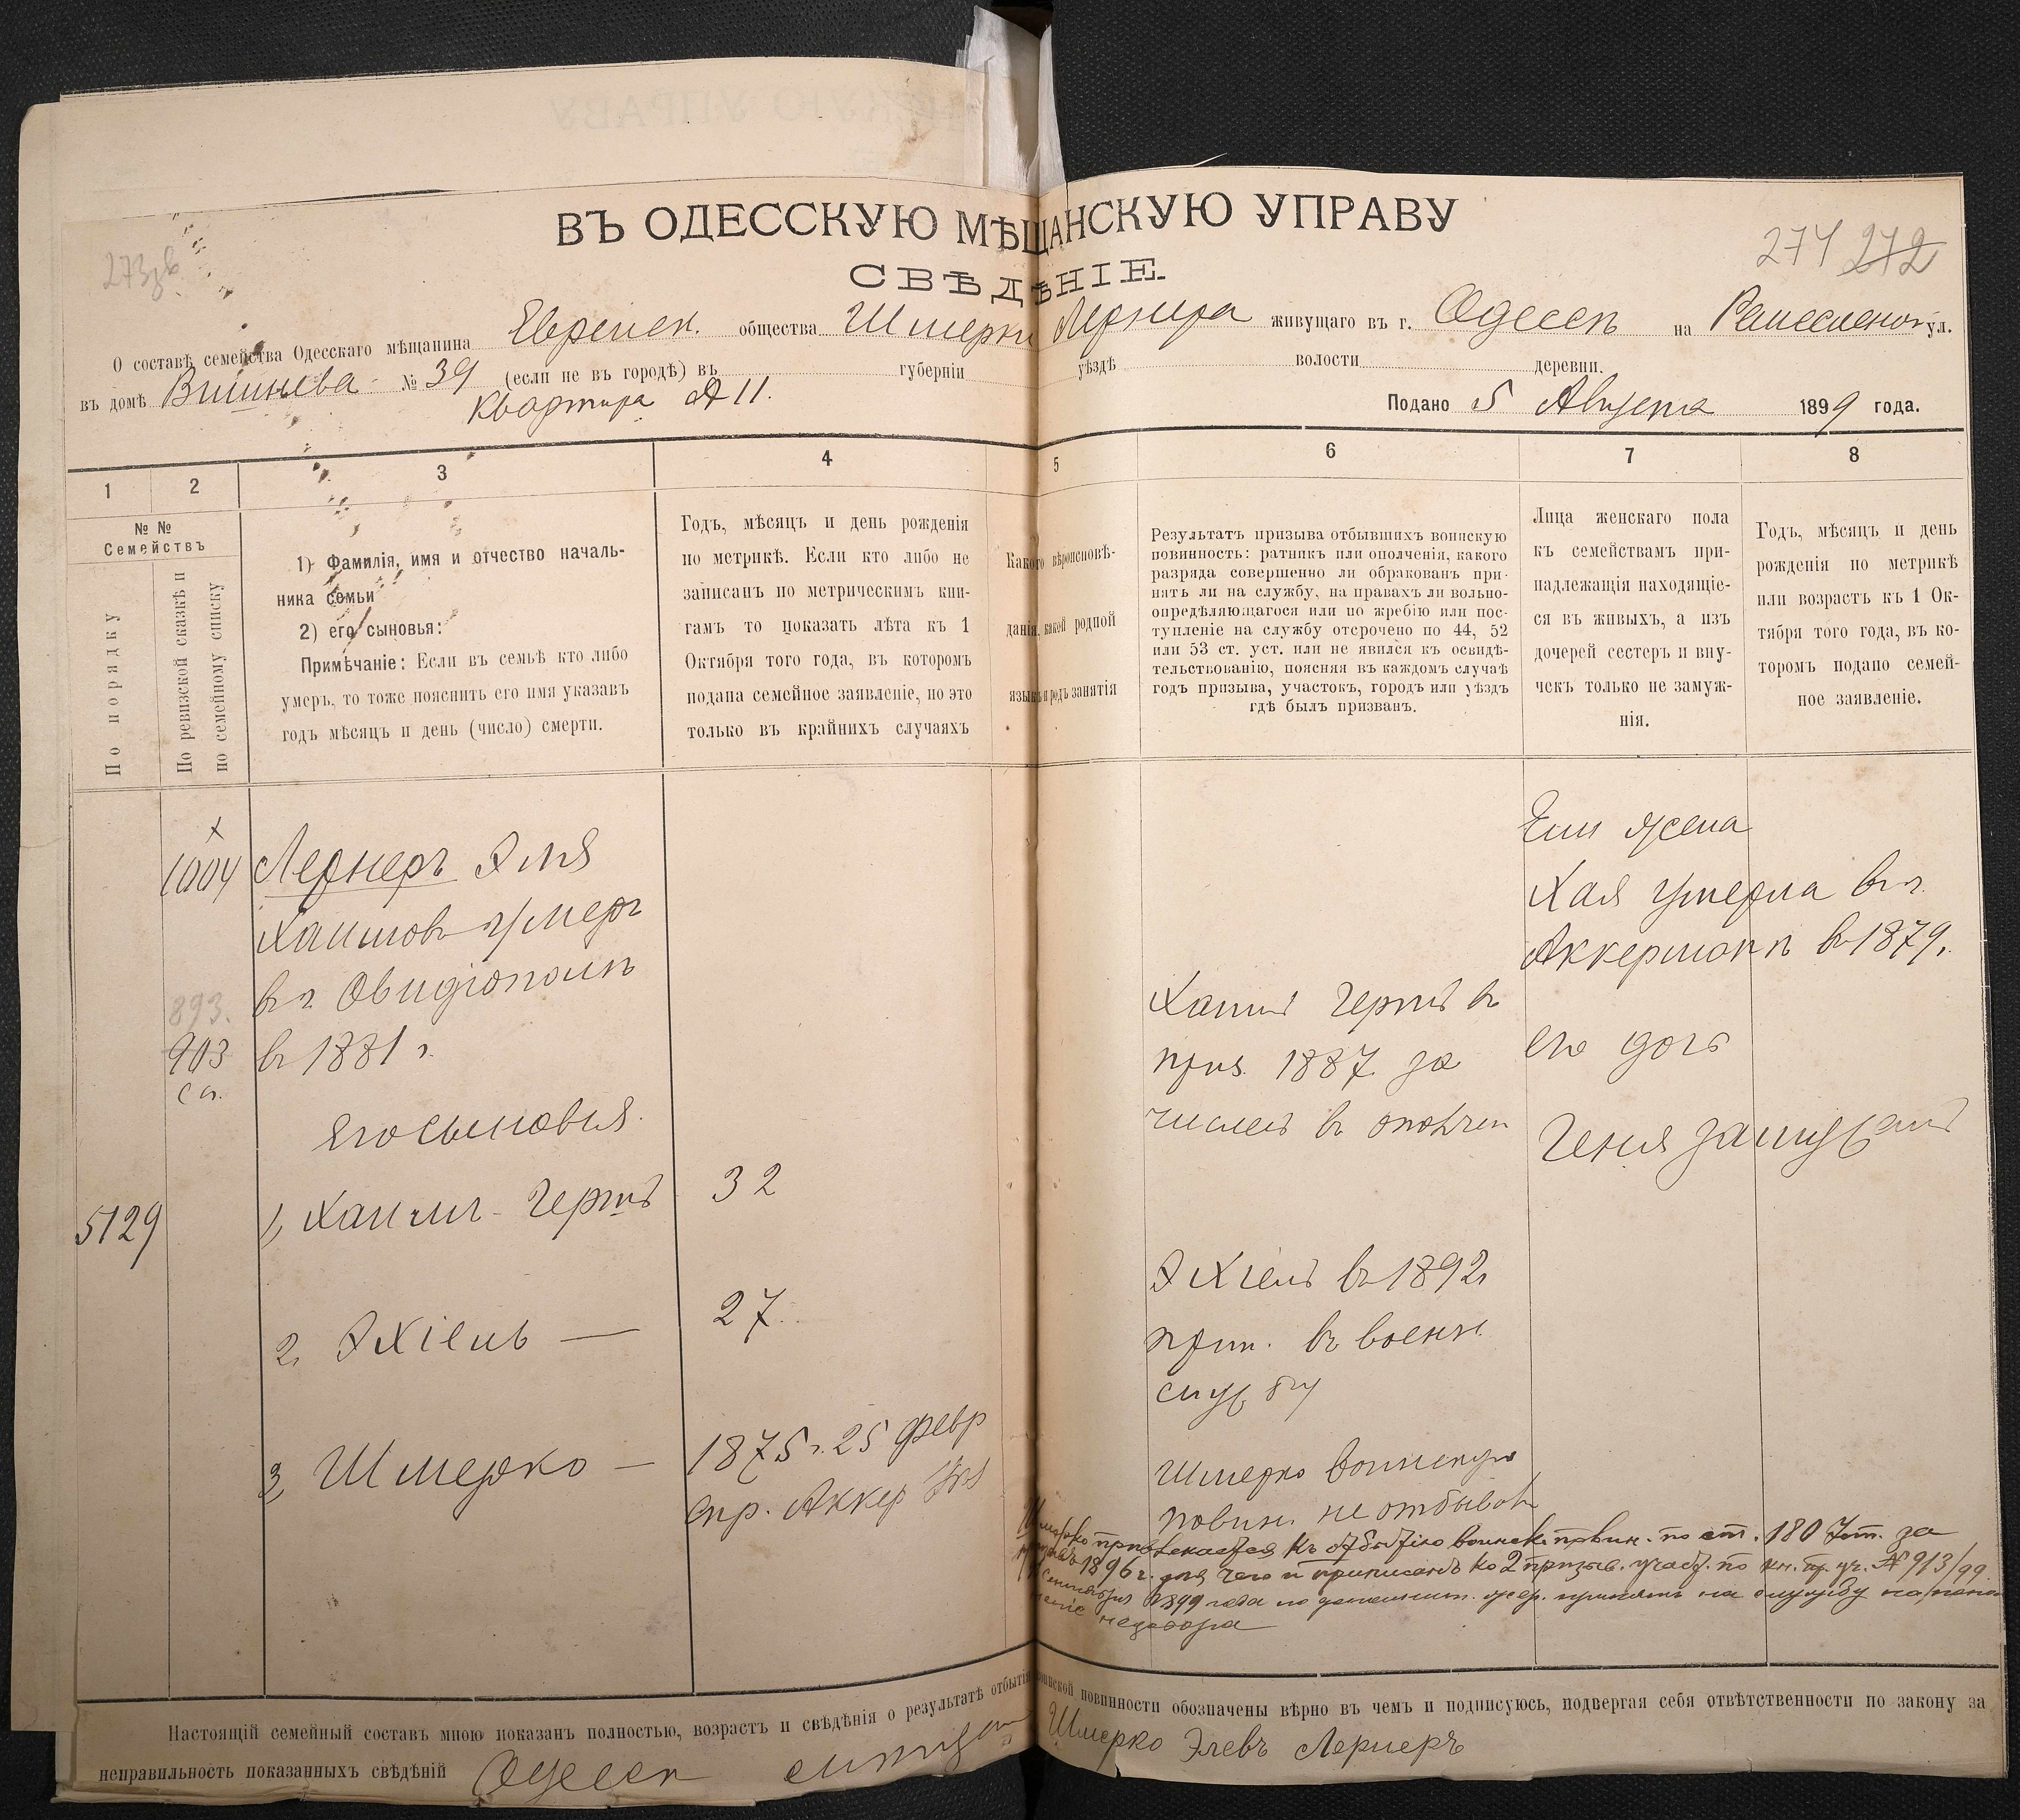 ВЪ ОДЕССКУЮ МѢЩАНСКУЮ УПРАВУ
СВѢДѢНІЕ.
274 272
О составѣ семейства Одесскаго мѣщанина Еврейск. общества Шмерки Лернера живущаго въ г. Одессѣ на Ремесленой ул.
въ домѣ Вишнева № 39 (если не въ городѣ) въ губерніи уѣздѣ волости деревни.
квартира № 11.
Подано 5 Августа 1899 года.
1 2 3 4 5 6 7 8
№ № Семействъ
По порядку
По ревизской сказкѣ и
по семейному списку
1) Фамилія, имя и отчество началь-
ника семьи
2) его сыновья:
Примѣчаніе: Если въ семьѣ кто либо
умеръ, то тоже пояснить его имя указавъ
годъ мѣсяцъ и день (число) смерти.
Годъ, мѣсяцъ и день рожденія
по метрикѣ. Если кто либо не
записанъ по метрическимъ кни-
гамъ то показать лѣта къ 1
Октября того года, въ которомъ
подана семейное заявленіе, но это
только въ крайнихъ случаяхъ
Какого вѣроисповѣ-
данія, какой родной
языкъ и родъ занятія
Результатъ призыва отбывшихъ воинскую
повинность: ратникъ или ополченія, какого
разряда совершенно ли обракованъ при-
нятъ ли на службу, на правахъ ли вольно-
опредѣляющагося или по жребію или пос-
тупленіе на службу отсрочено по 44, 52
или 53 ст. уст. или не явился къ освидѣ-
тельствованію, поясняя въ каждомъ случаѣ
годъ призыва, участокъ, городъ или уѣздъ
гдѣ былъ призванъ.
Лица женскаго пола
къ семействамъ при-
надлежащія находящіе-
ся въ живыхъ, а изъ
дочерей сестеръ и вну-
чекъ только не замуж-
нія.
Годъ, мѣсяцъ и день
рожденія по метрикѣ
или возрастъ къ 1 Ок-
тября того года, въ ко-
торомъ подано семей-
ное заявленіе.
х
1004
893.
903
сп.
5129
Лернеръ Эля
Хаимовъ умеръ
въ г. Овидіополѣ
въ 1881 г.
Его сыновья.
1, Хаимъ-Гершъ 32
2, Эхіель — 27.
3, Шмерко — 1875 г. 25 февр
спр. Аккер
Хаимъ Гершъ въ
приз. 1887 за
численъ въ ополчен
Эхіель въ 1892
прин. въ военн.
службу
Шмерко воинскую
повин. не отбывалъ
Его жена
Хая умерла въ г.
Аккерманѣ въ 1879.
его дочь
Геня замужемъ
Шмерко привлекается къ отбытію воинск. повин. по ст. 180 7 ст. за
1896 г. для чего и приписанъ ко 2 призыв. участ. по кн. пр. уч. № 913/99
сентября 1899 года по принятъ на службу на попол
неніе недобора
Настоящій семейный составъ мною показанъ полностью, возрастъ и свѣдѣнія о результатѣ отбытія воинской повинности обозначены вѣрно въ чемъ и подписуюсь, подвергая себя отвѣтственности по закону за
неправильность показанныхъ свѣдѣній Одесск Шмерко Элевъ Лернеръ